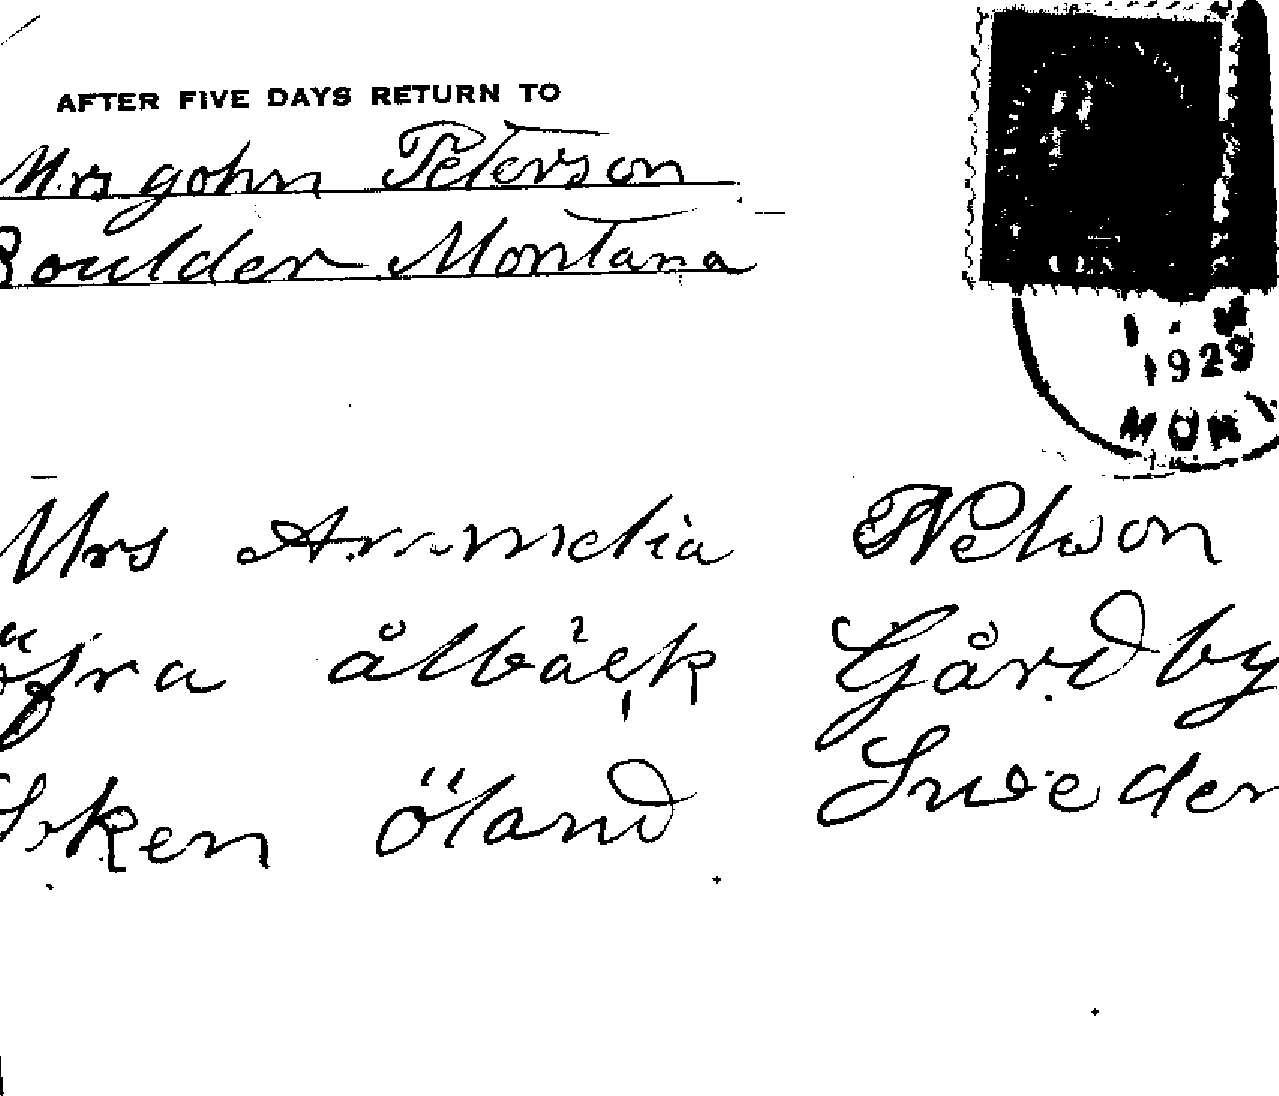 AFTER FIVE DAYS RETURN TO
Mrs John Peterson
Boulder Montana
1929
MONT
Mrs Annmelia Nelson
öfra ålbäck Gårdby
öland Sweden